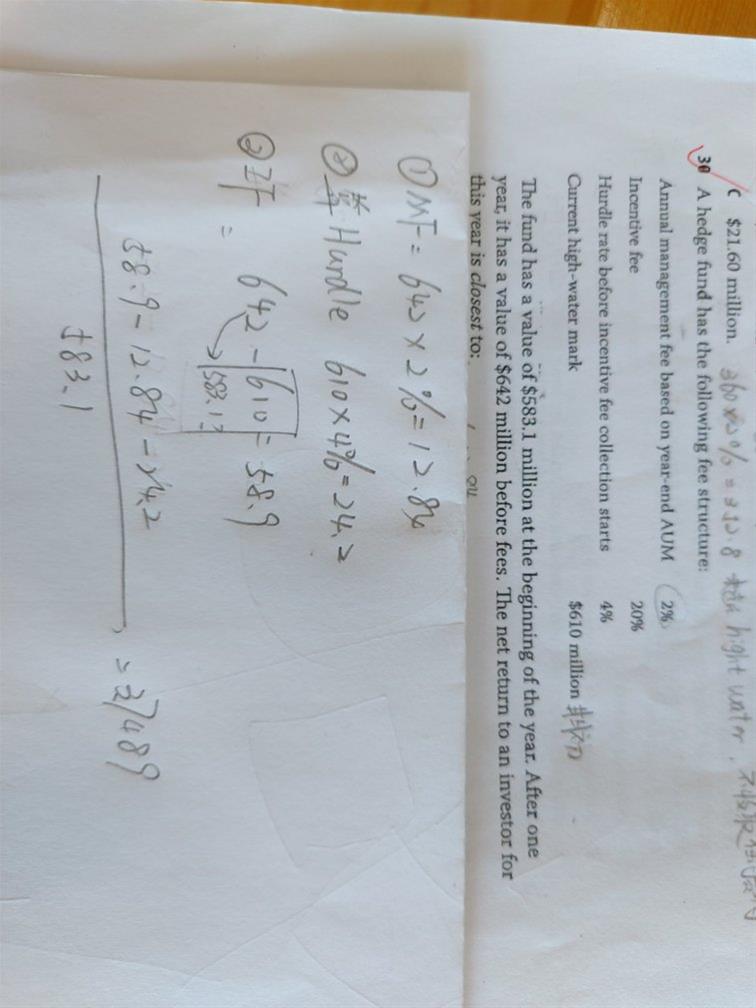 C $21.60 million.
30 A hedge fund has the following fee structure:
Annual management fee based on year-end AUM 2%
Incentive fee 20%
Hurdle rate before incentive fee collection starts 4%
Current high-water mark $610 million
The fund has a value of $583.1 million at the beginning of the year. After one
year, it has a value of $642 million before fees. The net return to an investor for
this year is closest to:
① MF = 642 × 2% = 12.84
② Hurdle 610×4% = 24.2
② IF = 642 - 610 = 58.9
583.1?
58.9 - 12.84 - 24.2
583.1